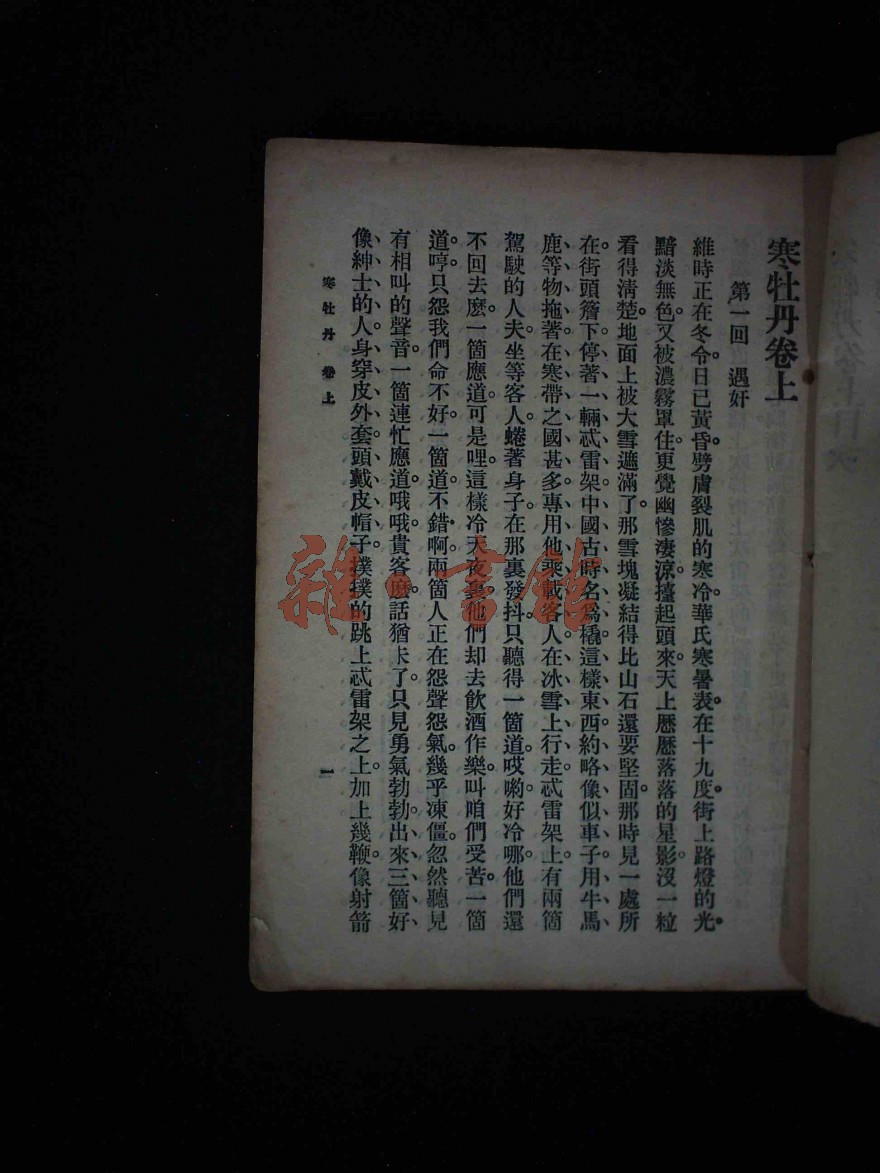 寒牡丹卷上
第一回　遇奸
維時正在冬令。日已黃昏。劈膚裂肌的寒冷。華氏寒暑表。在十九度。街上路燈的光。
黯淡無色。又被濃霧罩住。更覺幽慘淒涼。擡起頭來。天上歷歷落落的星影。沒一粒
看得清楚。地面上被大雪遮滿了。那雪塊凝結得比山石還要堅固。那時見一處所
在。街頭簷下。停著一輛忒雷架。中國古時名爲橇。這樣東西。約略像似車子。用牛馬、
鹿、等物拖著。在寒帶之國甚多。專用他乘載客人。在冰雪上行走。忒雷架上。有兩箇
駕駛的人夫。坐等客人。蜷著身子。在那裏發抖。只聽得一箇道。哎喲。好冷哪。他們還
不回去麽。一箇應道。可是哩。這樣冷天夜裏。他們却去飲酒作樂。叫咱們受苦。一箇
道。哼。只怨我們命不好。一箇道。不錯啊。兩箇人正在怨聲怨氣。幾乎凍僵。忽然聽見
有相叫的聲音。一箇連忙應道。哦哦。貴客麽。話猶未了。只見勇氣勃勃。出來三箇好
像紳士的人。身穿皮外套。頭戴皮帽子。撲撲的跳上忒雷架之上。加上幾鞭。像射箭
寒牡丹　卷上
一
雜·書館